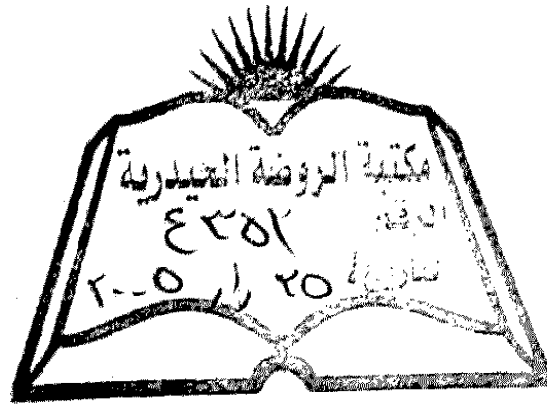 مكتبة الروضة الحيدرية
الرقم
تاريخ ٢٥ / / ٢٠٠٥